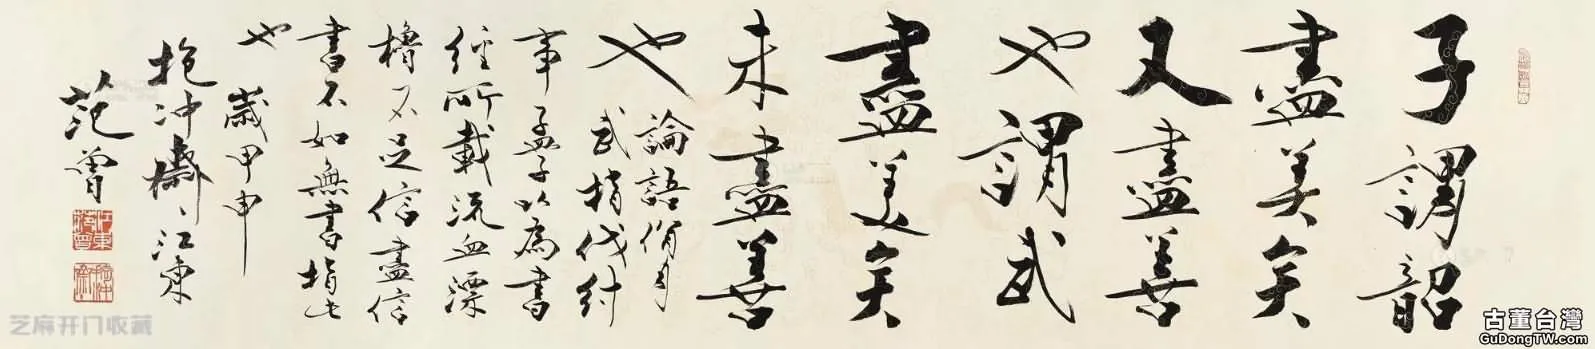 子謂韶
盡美矣
又盡善
也謂武
盡美矣
未盡善
也
論語
武指伐紂
事孟子以為書
經所載流血漂
櫓不足信盡信
書不如無書指此
也
歲甲申
抱冲齋江東
范曾
江東范曾
芝麻开门收藏
古董台灣
GuDongTW.com